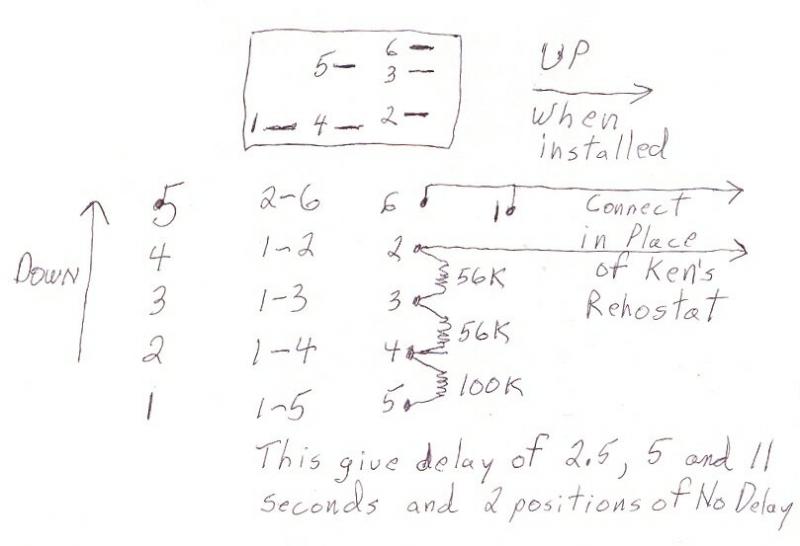 6
5
3
1 4 2
UP
When
installed
5 2-6 6 1
4 1-2 2
3 1-3 3
2 1-4 4
1 1-5 5
DOWN
56K
56K
100K
Connect
in Place
of Ken's
Rehostat
This give delay of 2.5, 5 and 11
seconds and 2 positions of No Delay